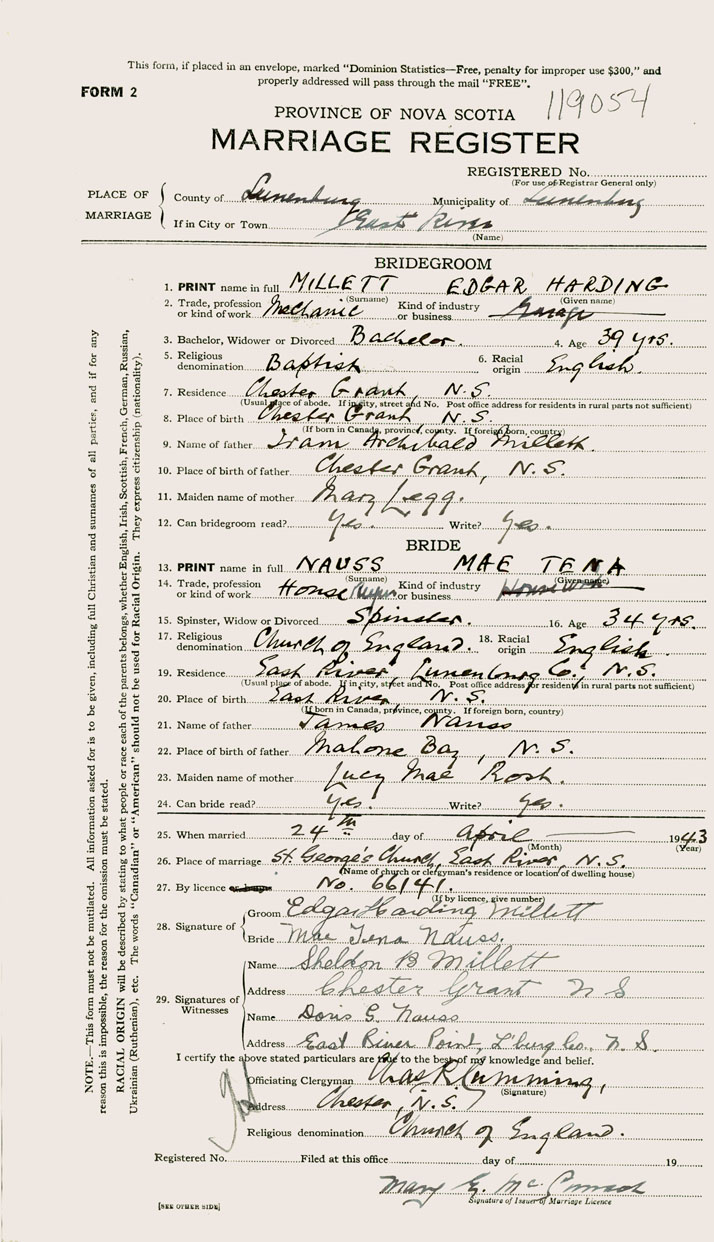 This form, if placed in an envelope, marked "Dominion Statistics—Free, penalty for improper use $300," and
properly addressed will pass through the mail "FREE".
FORM 2
119054
PROVINCE OF NOVA SCOTIA
MARRIAGE REGISTER
REGISTERED No.
(For use of Registrar General only)
PLACE OF MARRIAGE
County of Lunenburg Municipality of Lunenburg
If in City or Town East River
(Name)
BRIDEGROOM
1. PRINT name in full MILLETT EDGAR HARDING
(Surname) (Given name)
2. Trade, profession or kind of work Mechanic Kind of industry or business Garage
3. Bachelor, Widower or Divorced Bachelor. 4. Age 39 yrs.
5. Religious denomination Baptist 6. Racial origin English.
7. Residence Chester Grant, N.S.
(Usual place of abode. If in city, street and No. Post office address for residents in rural parts not sufficient)
8. Place of birth Chester Grant, N.S.
(If born in Canada, province, county. If foreign born, country)
9. Name of father Archibald Millett.
10. Place of birth of father Chester Grant, N.S.
11. Maiden name of mother Mary Legg.
12. Can bridegroom read? Yes. Write? Yes.
BRIDE
13. PRINT name in full NAUSS MAE TENA
(Surname) (Given name)
14. Trade, profession or kind of work House Kind of industry or business Housework
15. Spinster, Widow or Divorced Spinster. 16. Age 34 yrs.
17. Religious denomination Church of England. 18. Racial origin English.
19. Residence East River, Lunenburg Co., N.S.
(Usual place of abode. If in city, street and No. Post office address for residents in rural parts not sufficient)
20. Place of birth East River, N.S.
(If born in Canada, province, county. If foreign born, country)
21. Name of father James Nauss
22. Place of birth of father Mahone Bay, N.S.
23. Maiden name of mother Lucy Mae
24. Can bride read? Yes. Write? Yes.
25. When married 24th day of April 1943
(Month) (Year)
26. Place of marriage St. George's Church, East River, N.S.
(Name of church or clergyman's residence or location of dwelling house)
27. By licence No. 66141.
(If by licence, give number)
28. Signature of
Groom Edgar Harding Millett
Bride Mae Tena Nauss.
29. Signatures of Witnesses
Name Sheldon B Millett
Address Chester Grant N S
Name Doris G. Nauss
Address East River Point, L'burg Co., N. S.
I certify the above stated particulars are true to the best of my knowledge and belief.
Officiating Clergyman Chas R Cumming,
(Signature)
Address Chester, N.S.
Religious denomination Church of England.
Registered No. Filed at this office day of 19
Mary E.
Signature of Issuer of Marriage Licence
[SEE OTHER SIDE]
NOTE.—This form must not be mutilated. All information asked for is to be given, including full Christian and surnames of all parties, and if for any
reason this is impossible, the reason for the omission must be stated.
RACIAL ORIGIN will be described by stating to what people or race each of the parents belongs, whether English, Irish, Scottish, French, German, Russian,
Ukrainian (Ruthenian), etc. The words "Canadian" or "American" should not be used for Racial Origin. They express citizenship (nationality).